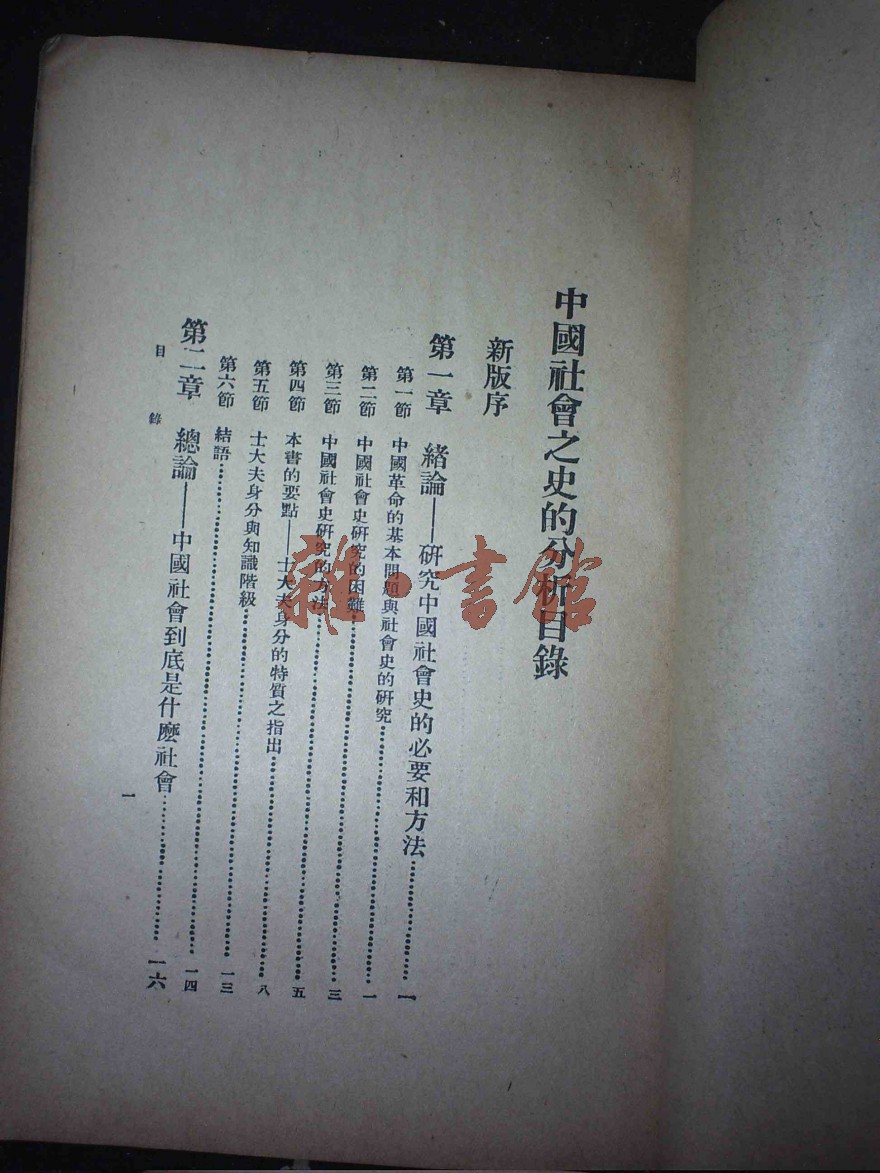 中國社會之史的分析目錄
新版序
第一章 緒論——研究中國社會史的必要和方法…………一
第一節 中國革命的基本問題與社會史的研究…………一
第二節 中國社會史研究的困難…………三
第三節 中國社會史研究的方法…………五
第四節 本書的要點——士大夫身分的特質之指出…………八
第五節 士大夫身分與知識階級…………一三
第六節 結語…………一四
第二章 總論——中國社會到底是什麼社會…………一六
目錄
一
雜·書館